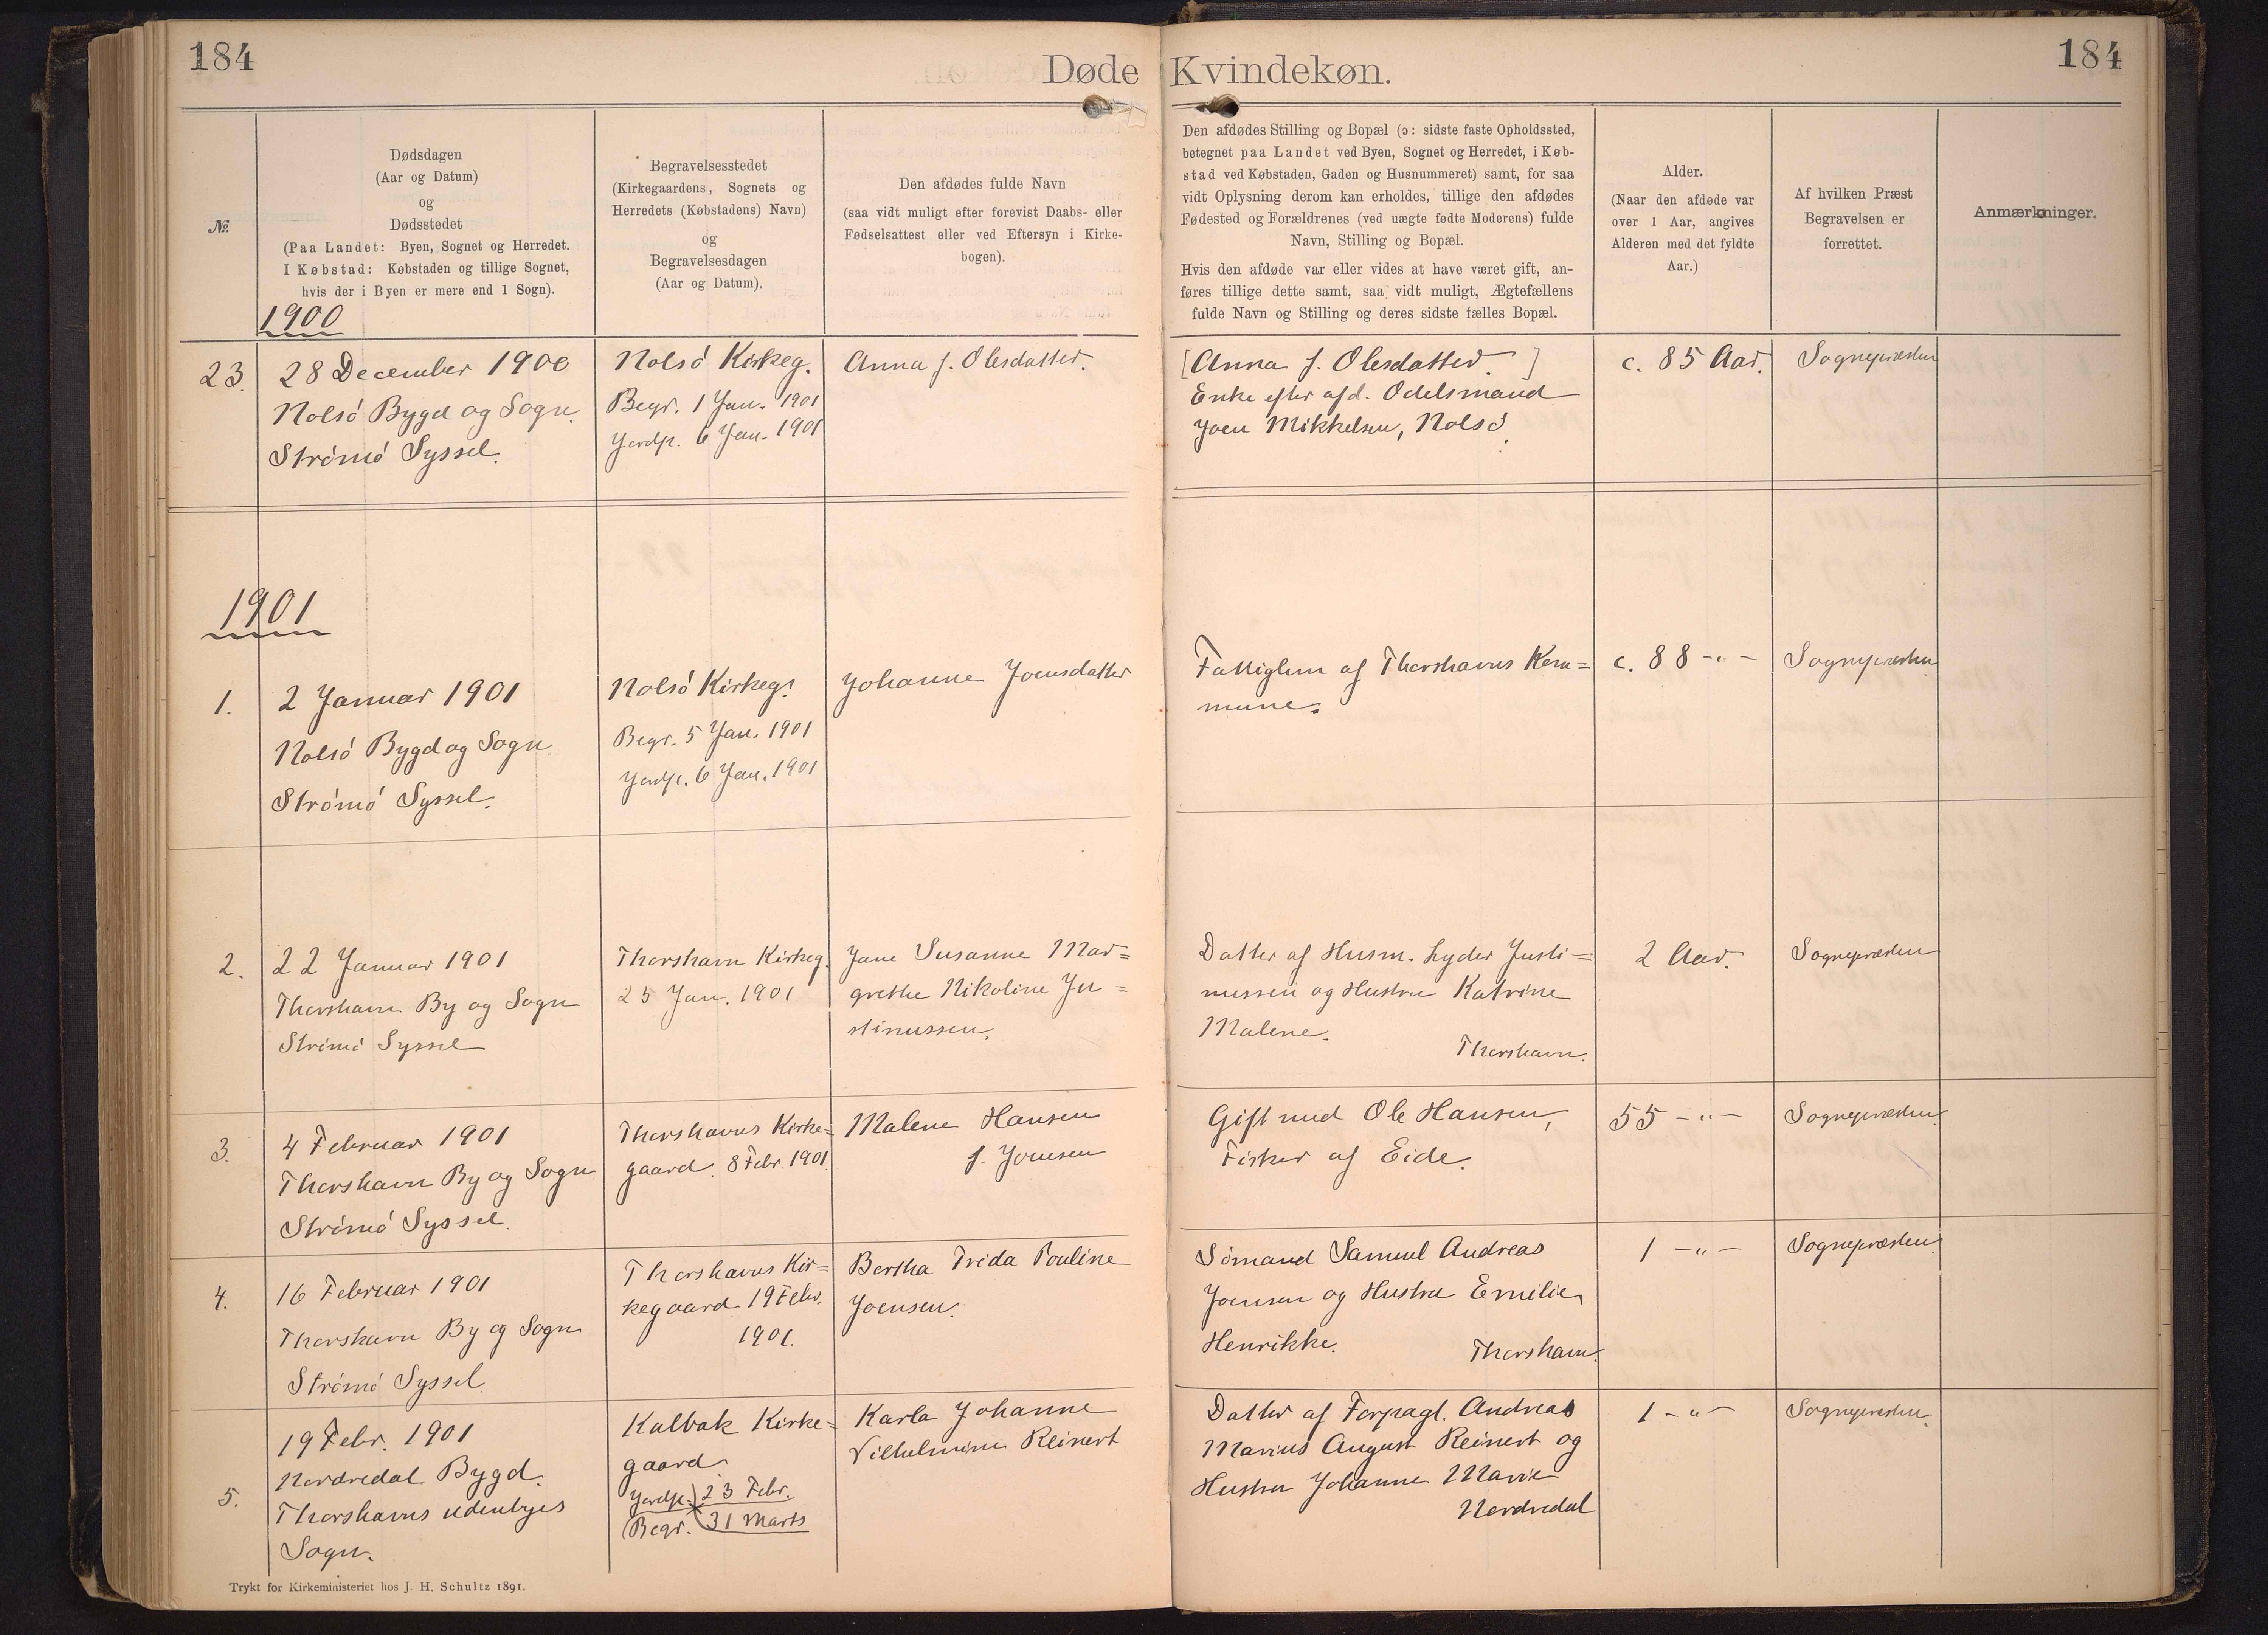 184
Døde Kvindekøn.
184
№
Dødsdagen
(Aar og Datum)
og
Dødsstedet
(Paa Landet: Byen, Sognet og Herredet.
I Købstad: Købstaden og tillige Sognet,
hvis der i Byen er mere end 1 Sogn).
Begravelsesstedet
(Kirkegaardens, Sognets og
Herredets (Købstadens) Navn)
og
Begravelsesdagen
(Aar og Datum).
Den afdødes fulde Navn
(saa vidt muligt efter forevist Daabs- eller
Fødselsattest eller ved Eftersyn i Kirke-
bogen).
Den afdødes Stilling og Bopæl (ɔ: sidste faste Opholdssted,
betegnet paa Landet ved Byen, Sognet og Herredet, i Køb-
stad ved Købstaden, Gaden og Husnummeret) samt, for saa
vidt Oplysning derom kan erholdes, tillige den afdødes
Fødested og Forældrenes (ved uægte fødte Moderens) fulde
Navn, Stilling og Bopæl.
Hvis den afdøde var eller vides at have været gift, an-
føres tillige dette samt, saa vidt muligt, Ægtefællens
fulde Navn og Stilling og deres sidste fælles Bopæl.
Alder.
(Naar den afdøde var
over 1 Aar, angives
Alderen med det fyldte
Aar.)
Af hvilken Præst
Begravelsen er
forrettet.
Anmærkninger.
1900
23.
28 December 1900
Nolsó Bygd og Sogn.
Strómó Syssel.
Nolsó Kirkeg.
Begr. 1 Jan. 1901
Jordp. 6 Jan. 1901
Anna f. Olesdatter.
[Anna f. Olesdatter.]
Enke efter afd. Odelsmand
Joen Mikkelsen, Nolsó.
c. 85 Aar.
Sognepræsten
1901
1.
2 Januar 1901
Nolsó Bygd og Sogn
Strómó Syssel.
Nolsó Kirkeg.
Begr. 5 Jan. 1901
Jordp. 6 Jan. 1901
Johanne Joensdatter
Fattiglem af Thorshavns Kom=
mune.
c. 88 -"-
Sognepræsten
2.
22 Januar 1901
Thorshavn By og Sogn
Strómó Syssel
Thorshavn Kirkeg.
25 Jan. 1901.
Jane Susanne Mar=
grethe Nikoline Ju=
stinussen.
Datter af Husm. Lyder Justi=
nussen og Hustru Katrine
Malene.
Thorshavn.
2 Aar.
Sognepræsten
3.
4 Februar 1901
Thorshavn By og Sogn.
Strómó Syssel.
Thorshavns Kirke=
gaard. 8 Febr. 1901.
Malene Hansen
f. Joensen
Gift med Ole Hansen,
Fisker af Eide.
55 -"-
Sognepræsten.
4.
16 Februar 1901
Thorshavn By og Sogn
Strómó Syssel
Thorshavns Kir=
kegaard 19 Febr.
1901.
Bertha Frida Pouline
Joensen.
Sómand Samuel Andreas
Joensen og Hustru Emilie
Henrikke.
Thorshavn.
1 -"-
Sognepræsten.
5.
19 Febr. 1901
Nordredal Bygd.
Thorshavns udenbyes
Sogn.
Kalbak Kirke=
gaard.
Jordp. 23 Febr.
Begr. 31 Marts
Karla Johanne
Vilhelmine Reinert
Datter af Forpagt. Andreas
Marius August Reinert og
Hustru Johanne Marie
Nordredal
1 -"-
Sognepræsten.
Trykt for Kirkeministeriet hos J. H. Schultz 1891.